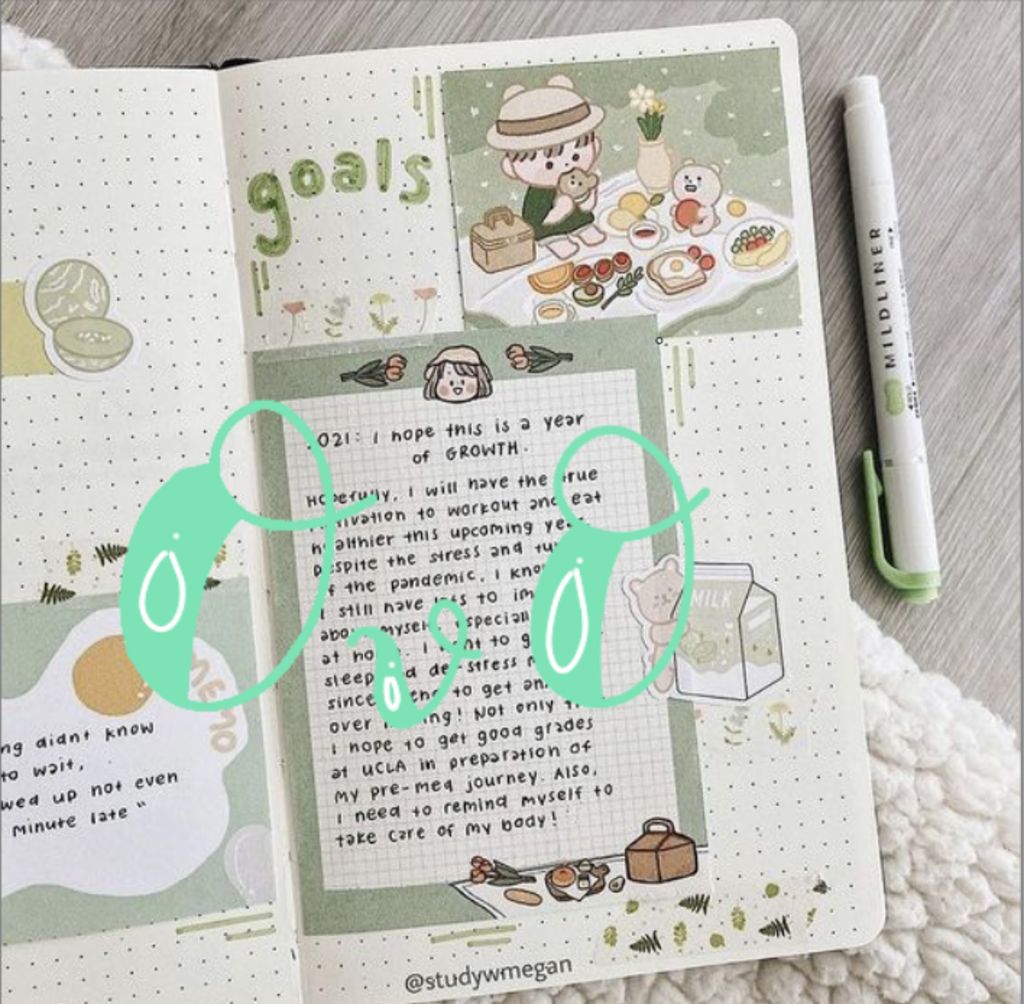 goals
2021: I hope this is a year
of GROWTH.
Hopefully, I will have the true
motivation to workout and eat
healthier this upcoming year
despite the stress and
of the pandemic. I know
I still have lots to
about myself, especially
at home. I want to
sleep and de-stress
since I tend to get
over
! Not only
I hope to get good grades
at UCLA in preparation of
my pre-med journey. Also,
I need to remind myself to
take care of my body!
OvO
MILK
MILDLINER
MEMO
ng didnt know
to wait,
wed up not even
minute late"
@studywmegan